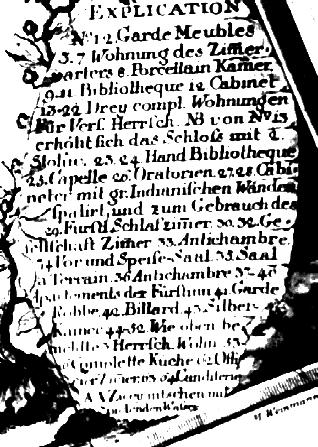 EXPLICATION
N° 1 2 Garde Meubles
3. 7 Wohnung des Zimer-
warters 8. Porcellain Kamer,
9-11 Bibliotheque 12 Cabinet
13-22 Drey compl. Wohnungen
für Versf. Herrsch. NB von N° 13
erhöht sich das Schloss mit d.
23. 24 Hand Bibliotheque
25. Capelle 26. Oratorien 27. 28. Cabi-
neter mit gr. Indianischen Wänden
spalirt, und zum Gebrauch des
29. Fürstl Schlafzimer. 30. 32. Ge-
sellschaft Zimer 33. Antichambre.
34 Vor und Speise-Saal. 35. Saal
a Terrain. 36 Antichambre 37-40
Apartements der Fürstinn 41. Garde
Robbe. 42. Billard. 43. Silber-
Kamer 44-52. Wie oben be
Herrsch. Wohn. 53
Complette Küche 62
63 64 Conditerey
A A Zwey mit
Weinmann